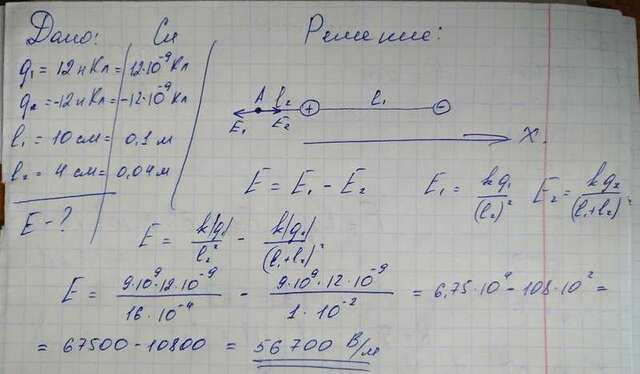 Дано: Си Решение:
q₁ = 12 нКл = 12·10⁻⁹ Кл
q₂ = -12 нКл = -12·10⁻⁹ Кл
l₁ = 10 см = 0,1 м
l₂ = 4 см = 0,04 м
E - ?
A l₂ + l₁ -
E₁ E₂
X
E = E₁ - E₂ E₁ = kq₁/(l₂)² E₂ = kq₂/(l₁+l₂)²
E = k|q₁|/l₂² - k|q₂|/(l₁+l₂)²
E = 9·10⁹·12·10⁻⁹/16·10⁻⁴ - 9·10⁹·12·10⁻⁹/1·10⁻² = 6,75·10⁴ - 108·10² =
= 67500 - 10800 = 56700 В/м